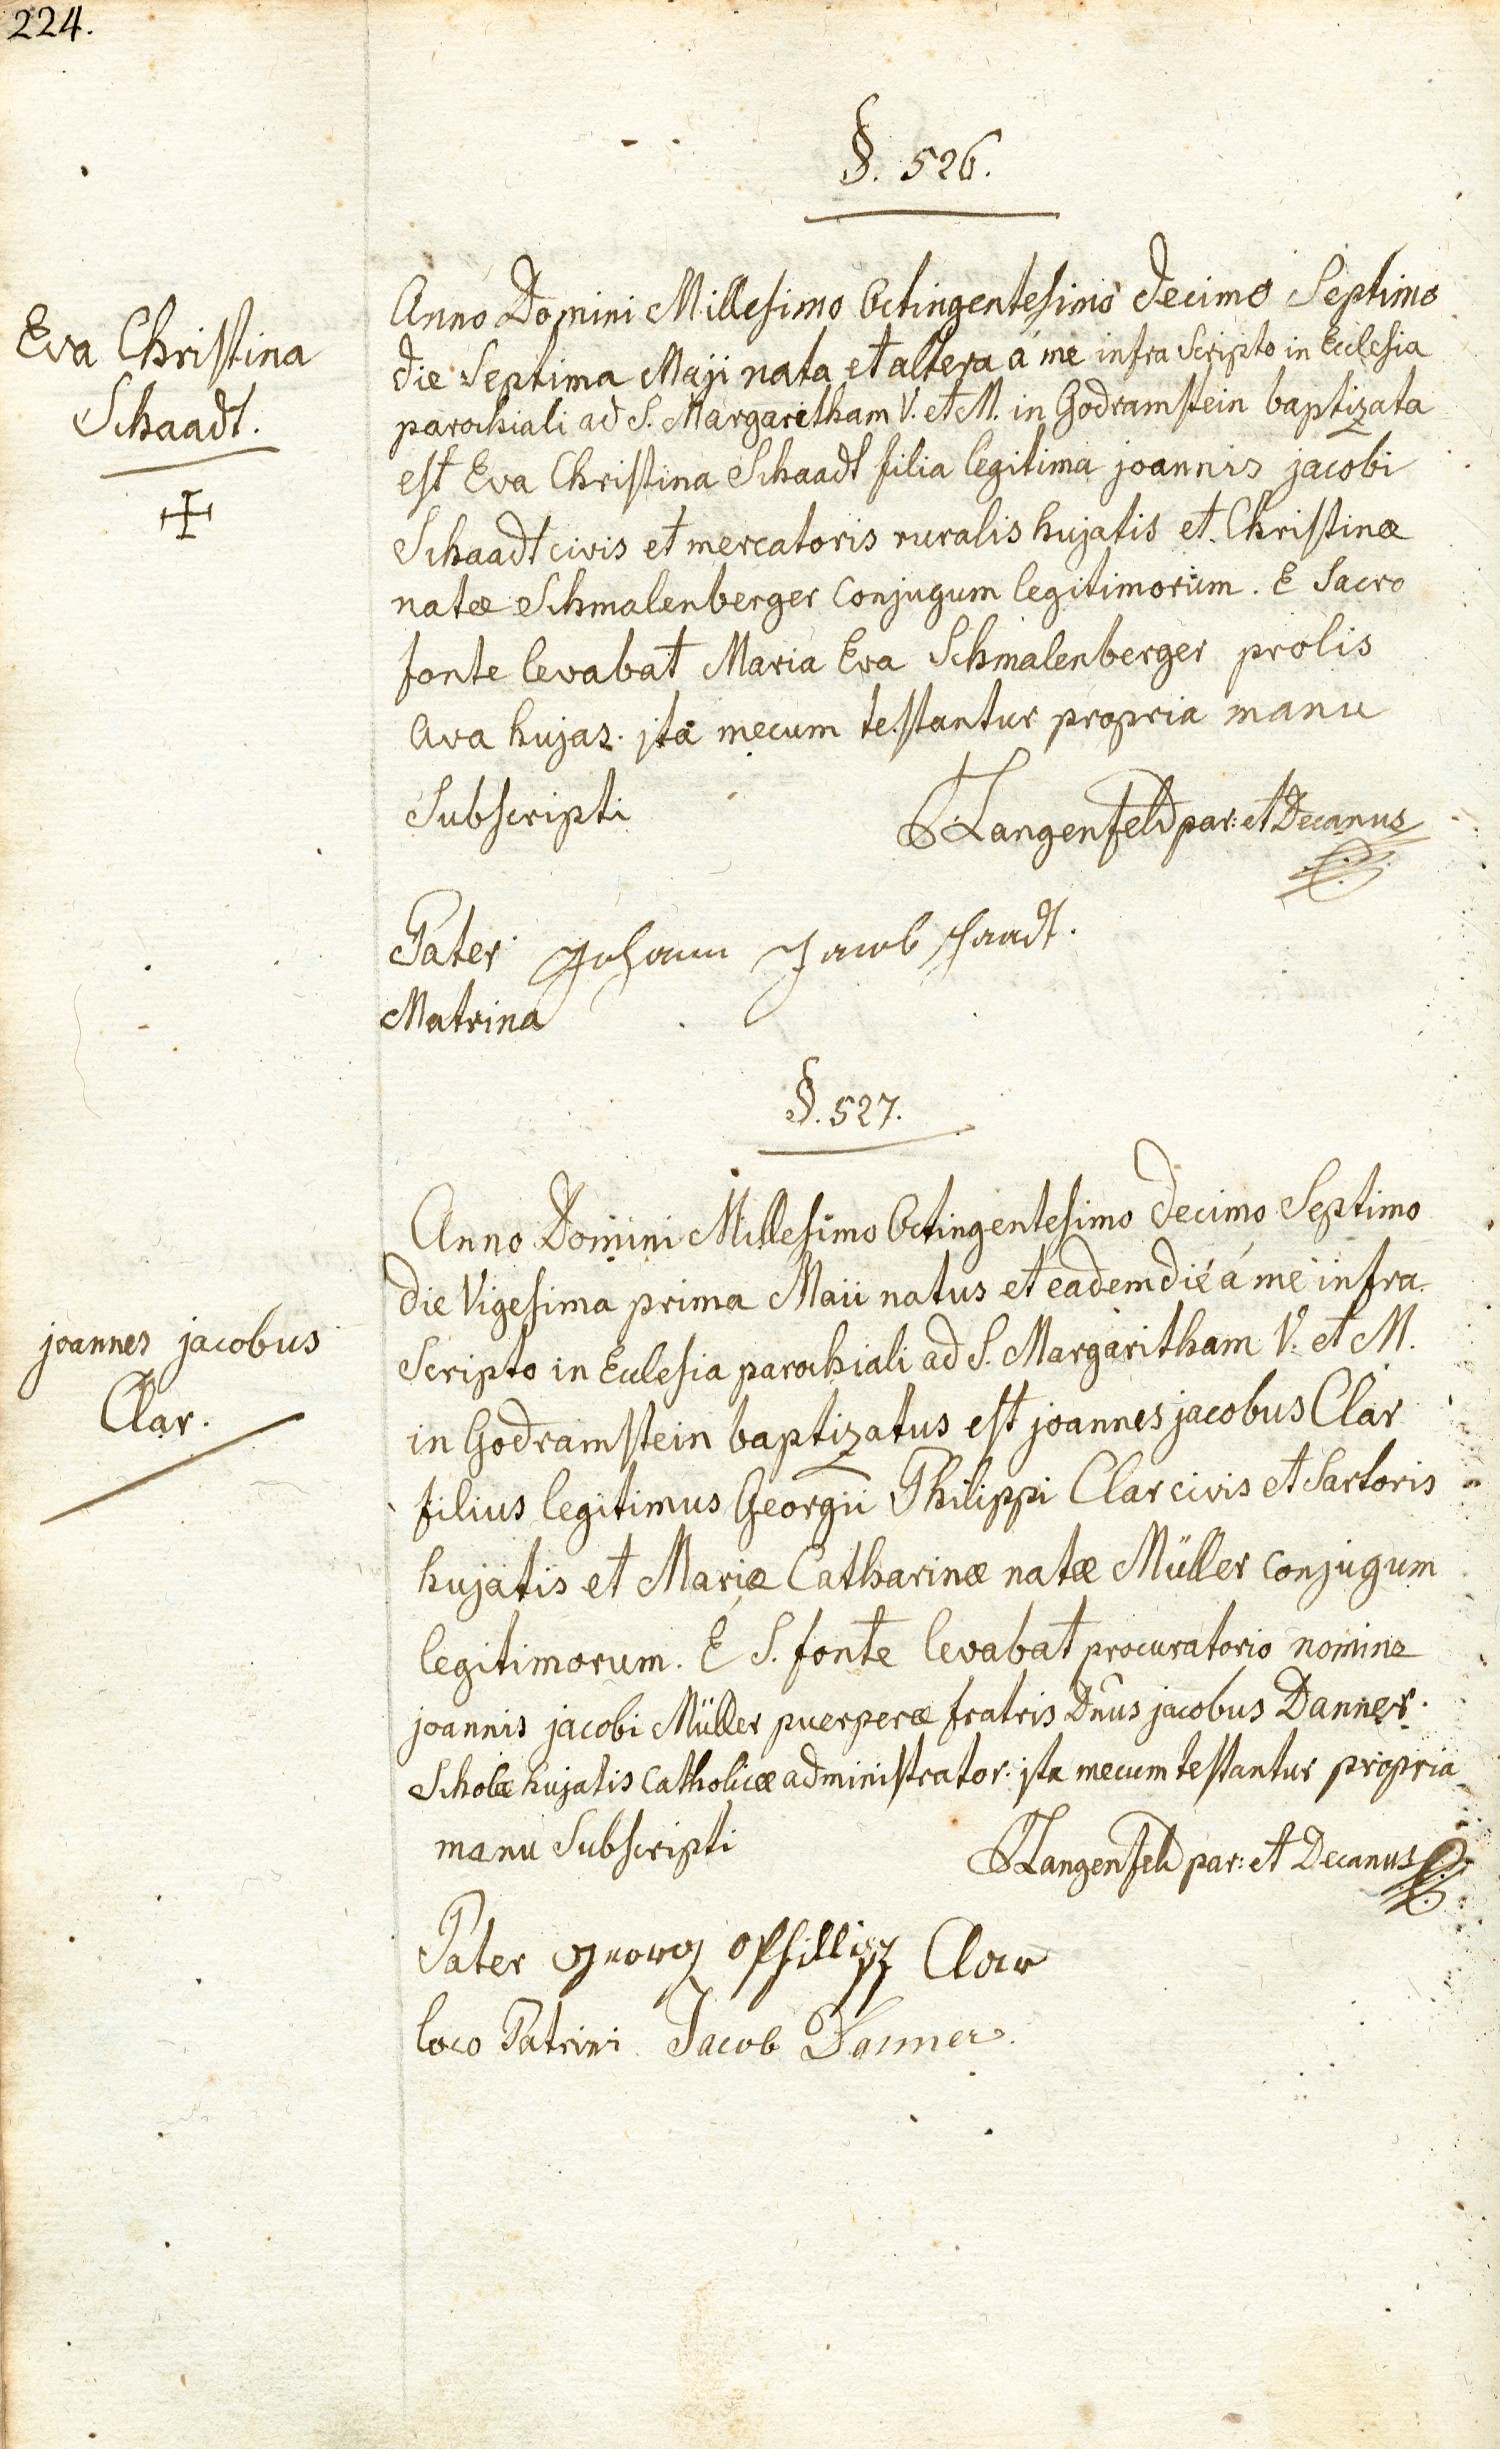 224.
§. 526.
Eva Christina
Schaadt.
Anno Domini Millesimo Octingentesimo decimo Septimo
die Septima Maji nata et altera á me infra Scripto in Ecclesia
parochiali ad S. Margaretham V. et M. in Godramstein baptizata
est Eva Christina Schaadt filia legitima joannis jacobi
Schaadt civis et mercatoris ruralis hujatis et Christinæ
natæ Schmalenberger Conjugum legitimorum. E Sacro
fonte levabat Maria Eva Schmalenberger prolis
ava hujas. jta mecum testantur propria manu
Subscripti
Langenfeld par: et Decanus
Pater Johann Jacob Schaadt.
Matrina
§. 527.
joannes jacobus
Clar.
Anno Domini Millesimo Octingentesimo decimo Septimo
die Vigesima prima Maii natus et eadem die á me infra
Scripto in Ecclesia parochiali ad S. Margaritham V. et M.
in Godramstein baptizatus est joannes jacobus Clar
filius legitimus Georgii Philippi Clar civis et Sartoris
hujatis et Mariæ Catharinæ natæ Müller Conjugum
legitimorum. E S. fonte levabat procuratorio nomine
joannis jacobi Müller puerperæ fratris Dnus jacobus Danner.
Scholæ hujatis Catholicæ administrator. jta mecum testantur propria
manu Subscripti
Langenfeld par: et Decanus
Pater Georg Phillipp Clar
loco Patrini Jacob Danner.